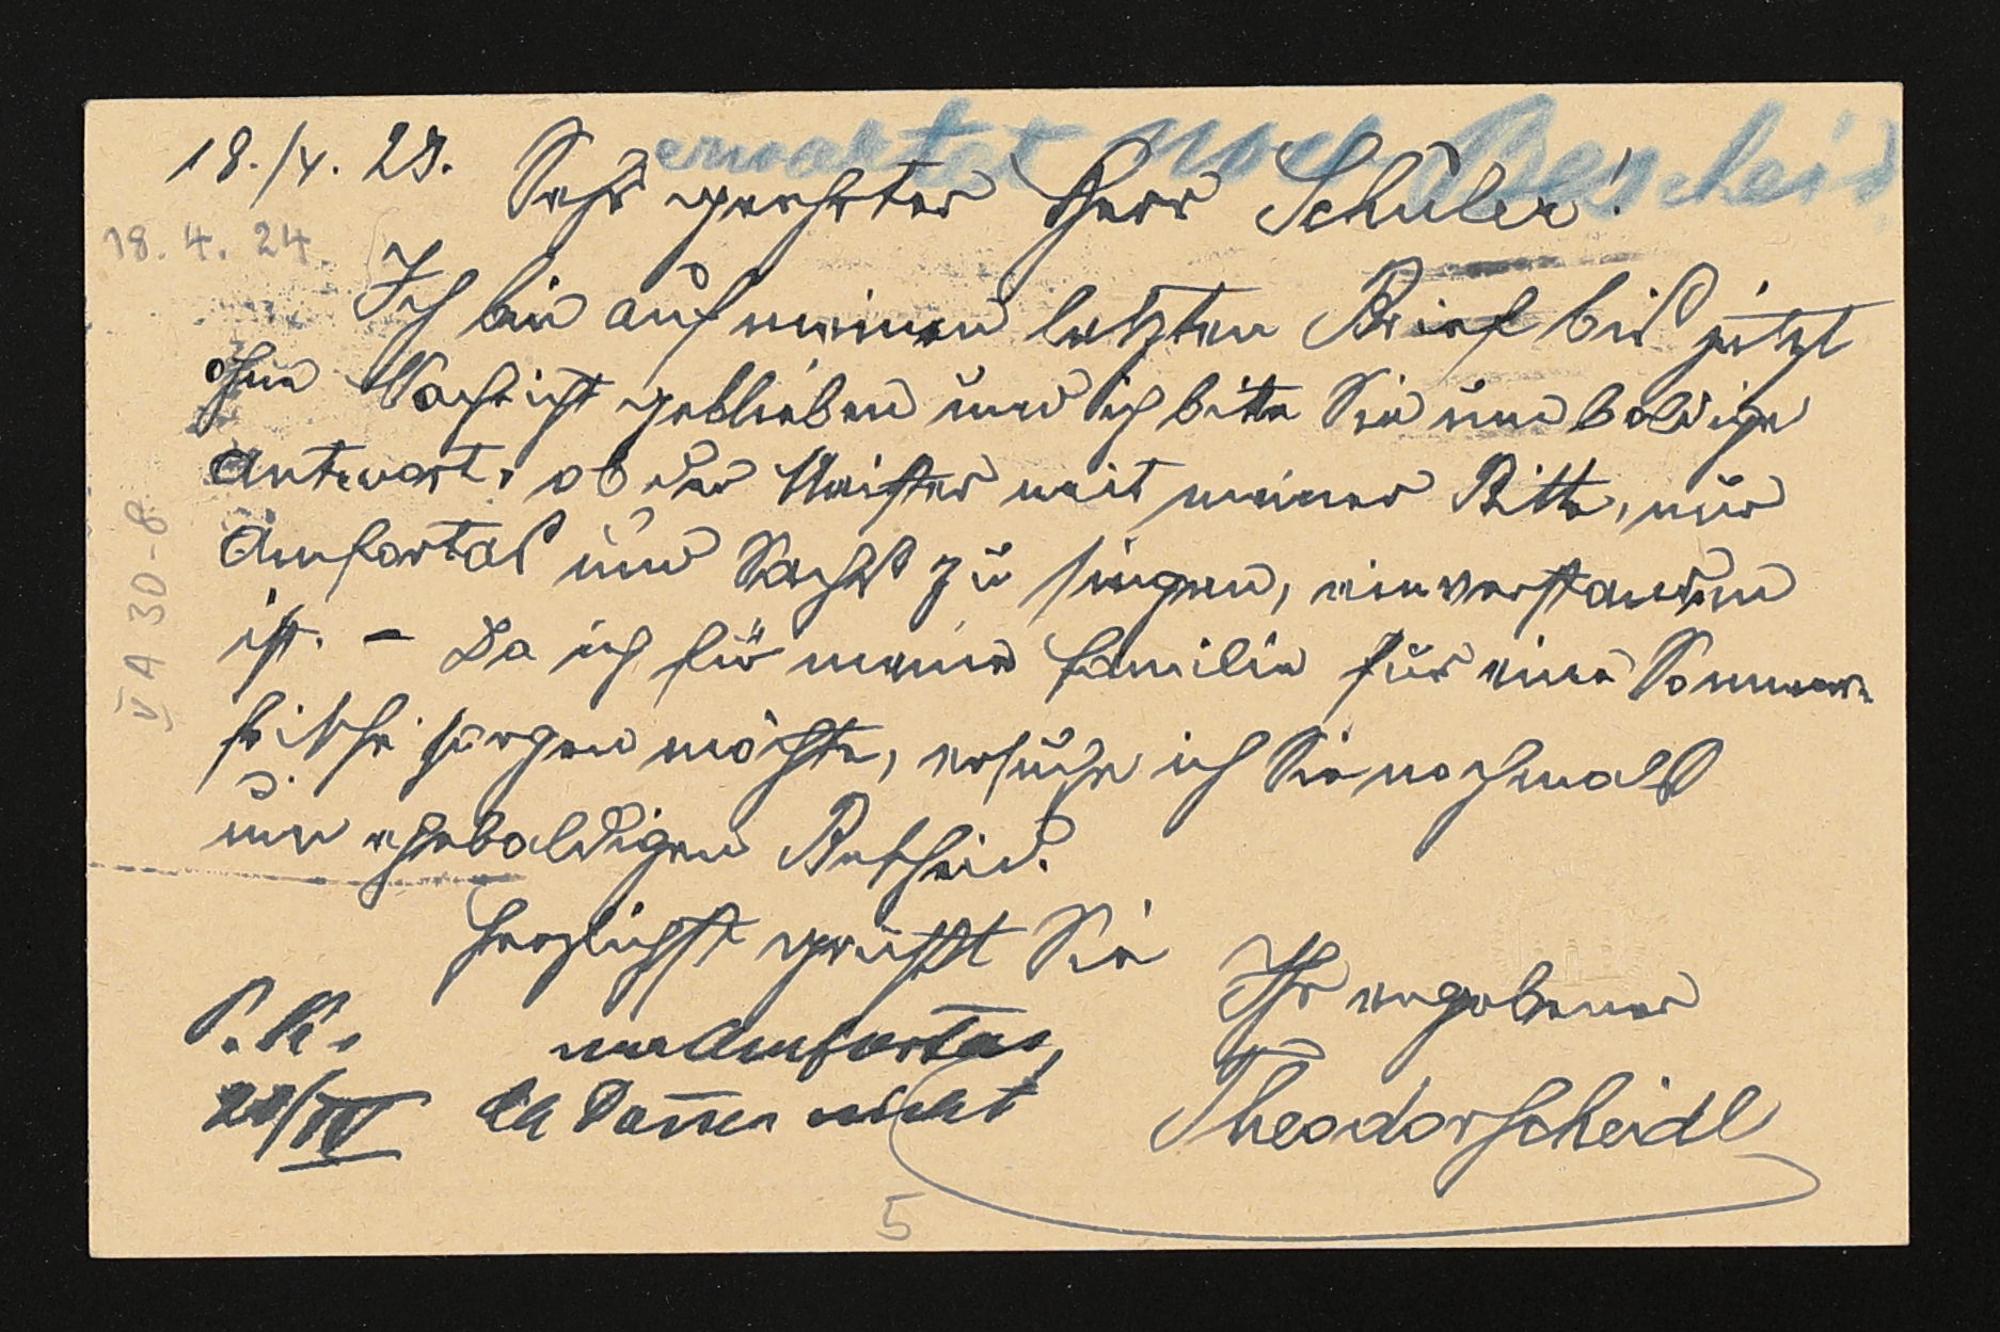 erwartet noch Bescheid
18./4. 23.
Sehr geehrter Herr Schuler!
18. 4. 24.
Ich bin auf meinen letzten Brief bis jetzt
ohne Nachricht geblieben und ich bitte Sie um baldige
Antwort, ob der Meister mit meiner Bitte, nur
Amfortas und Sachs zu singen, einverstanden
ist. – Da ich für meine Familie für eine Sommer-
frische sorgen möchte, ersuche ich Sie nochmals
um ehebaldigen Bescheid.
Herzlichst grüßt Sie
Ihr ergebener
Theodor Scheidl
nur Amfortas,
20/IV
nicht
V A 30-8
5